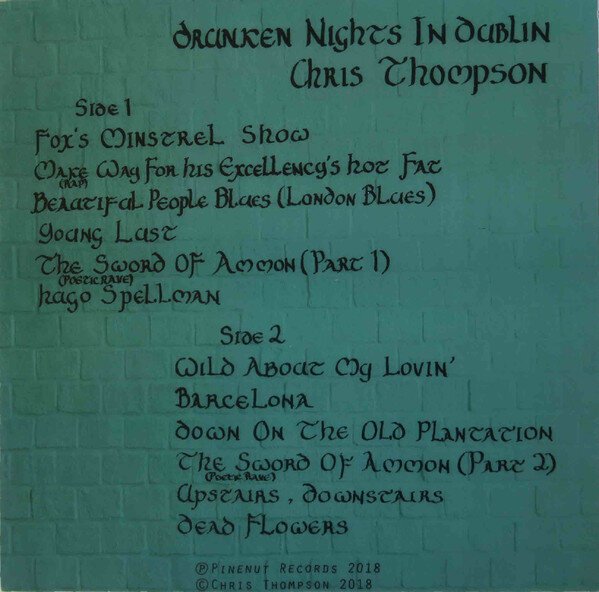 Drunken Nights In Dublin
Chris Thompson
Side 1
Fox's Minstrel Show
Make Way For his Excellency's hot Fat
(RAP)
Beautiful People Blues (London Blues)
Young Lust
The Sword Of Ammon (Part 1)
(Poetic Rave)
hugo Spellman
Side 2
Wild About My Lovin'
Barcelona
Down On The Old Plantation
The Sword Of Ammon (Part 2)
(Poetic Rave)
Upstairs, Downstairs
Dead Flowers
Ⓟ Pinenut Records 2018
© Chris Thompson 2018